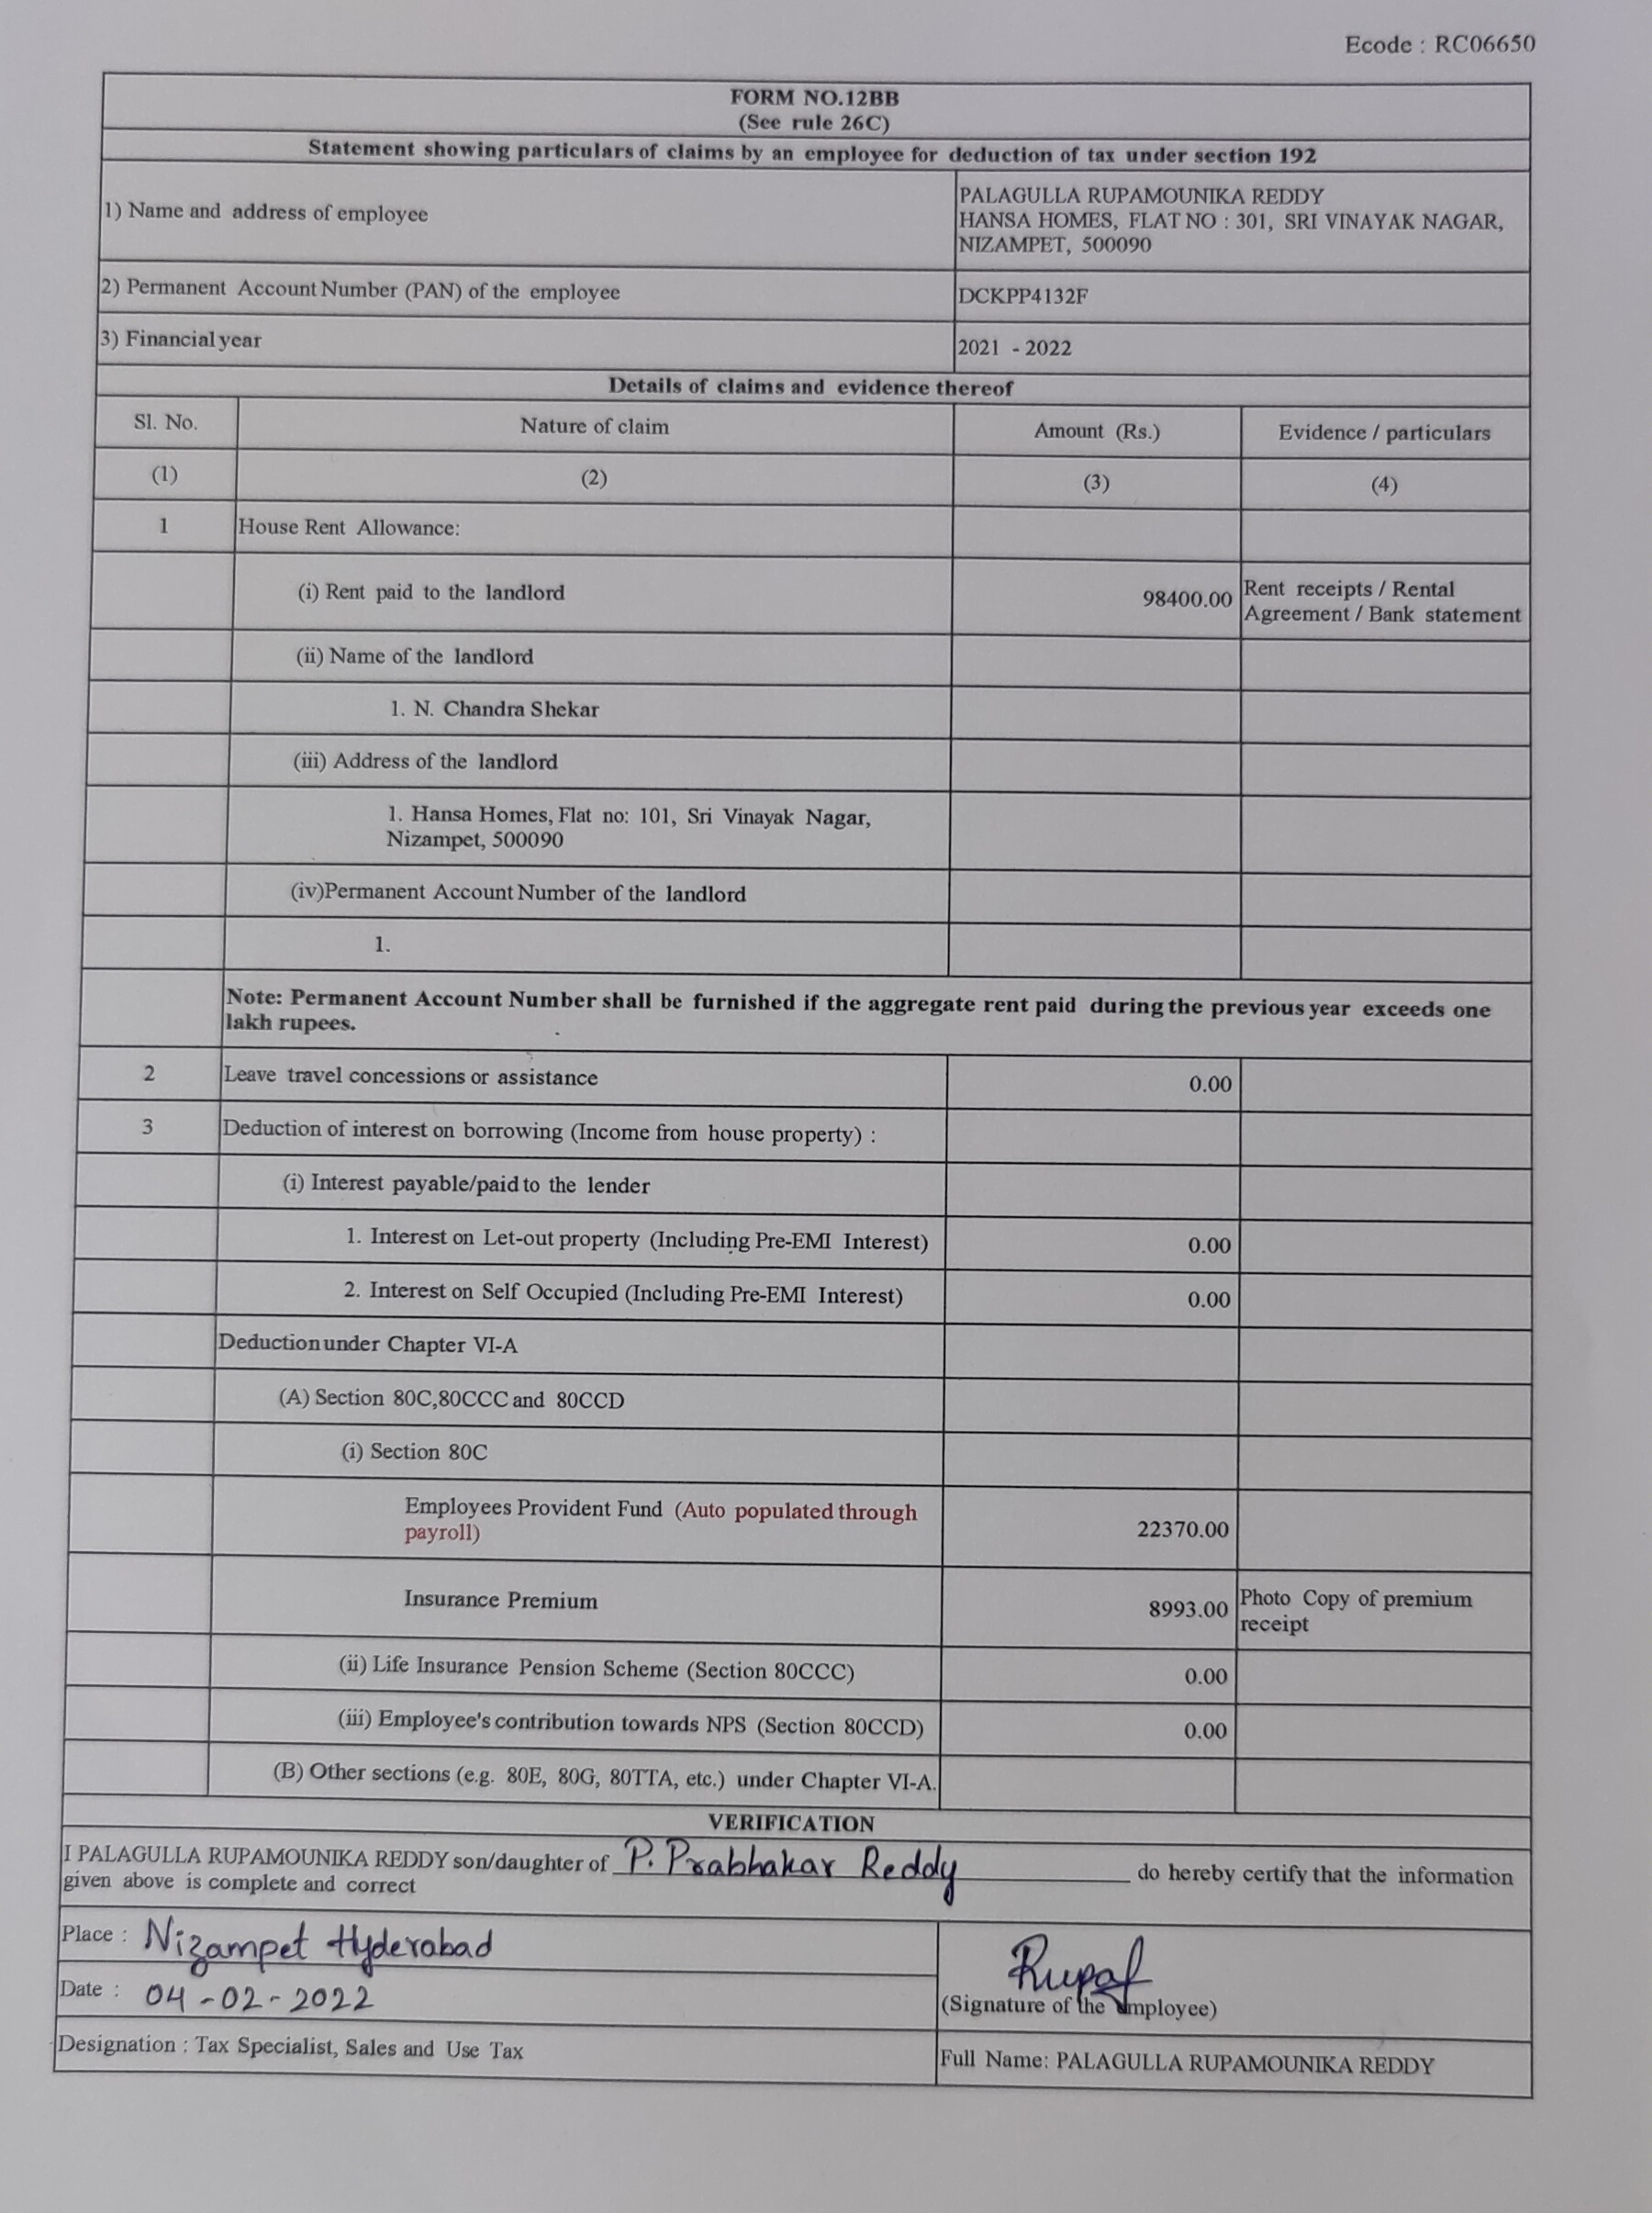 Ecode : RC06650
FORM NO.12BB
(See rule 26C)
Statement showing particulars of claims by an employee for deduction of tax under section 192
1) Name and address of employee
PALAGULLA RUPAMOUNIKA REDDY
HANSA HOMES, FLAT NO : 301, SRI VINAYAK NAGAR,
NIZAMPET, 500090
2) Permanent Account Number (PAN) of the employee
DCKPP4132F
3) Financial year
2021 - 2022
Details of claims and evidence thereof
Sl. No. Nature of claim Amount (Rs.) Evidence / particulars
(1) (2) (3) (4)
1 House Rent Allowance:
(i) Rent paid to the landlord 98400.00 Rent receipts / Rental
Agreement / Bank statement
(ii) Name of the landlord
1. N. Chandra Shekar
(iii) Address of the landlord
1. Hansa Homes, Flat no: 101, Sri Vinayak Nagar,
Nizampet, 500090
(iv)Permanent Account Number of the landlord
1.
Note: Permanent Account Number shall be furnished if the aggregate rent paid during the previous year exceeds one
lakh rupees.
2 Leave travel concessions or assistance 0.00
3 Deduction of interest on borrowing (Income from house property) :
(i) Interest payable/paid to the lender
1. Interest on Let-out property (Including Pre-EMI Interest) 0.00
2. Interest on Self Occupied (Including Pre-EMI Interest) 0.00
Deduction under Chapter VI-A
(A) Section 80C,80CCC and 80CCD
(i) Section 80C
Employees Provident Fund (Auto populated through
payroll) 22370.00
Insurance Premium 8993.00 Photo Copy of premium
receipt
(ii) Life Insurance Pension Scheme (Section 80CCC) 0.00
(iii) Employee's contribution towards NPS (Section 80CCD) 0.00
(B) Other sections (e.g. 80E, 80G, 80TTA, etc.) under Chapter VI-A.
VERIFICATION
I PALAGULLA RUPAMOUNIKA REDDY son/daughter of P. Prabhakar Reddy do hereby certify that the information
given above is complete and correct
Place : Nizampet Hyderabad
Date : 04-02-2022
(Signature of the employee)
Designation : Tax Specialist, Sales and Use Tax
Full Name: PALAGULLA RUPAMOUNIKA REDDY